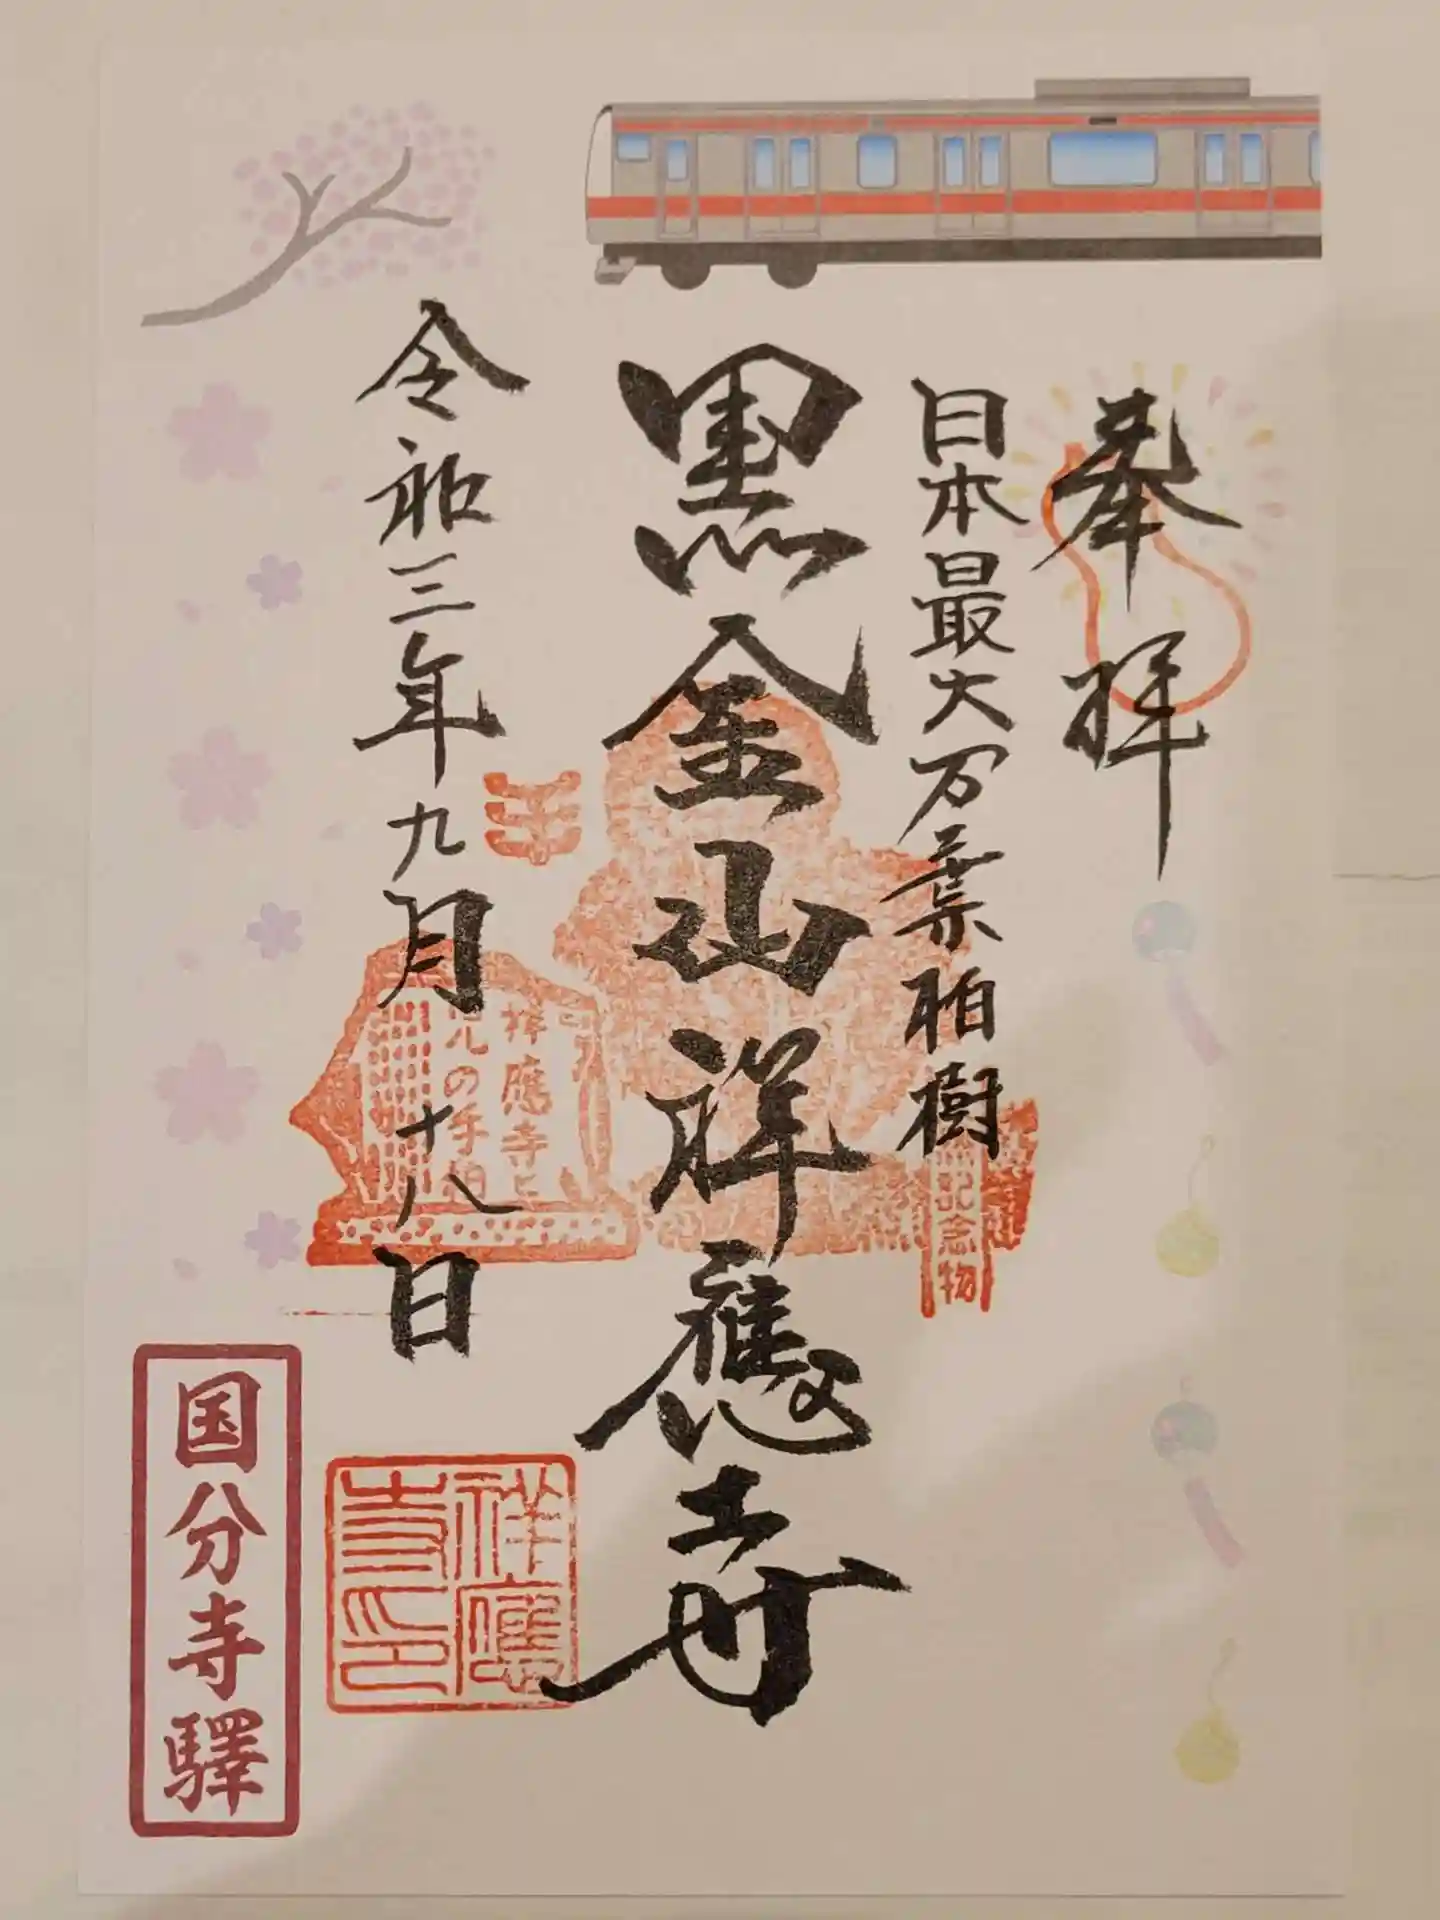 奉拝
日本最大万葉柏樹
黒金山祥應寺
令和三年九月十八日
記念物
祥應寺と
の手
祥應
寺印
国分寺驛